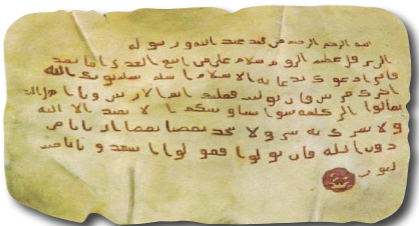 بسم الله الرحمن الرحيم من محمد عبد الله ورسوله
الى هرقل عظيم الروم سلام على من اتبع الهدى اما بعد
فانى ادعوك بدعاية الاسلام اسلم تسلم يوتك الله
اجرك مرتين فان توليت فعليك اثم الاريسيين ويا اهل الكتب
تعالوا الى كلمة سوا بيننا وبينكم الا نعبد الا الله
ولا نشرك به شيا ولا يتخذ بعضنا بعضا اربابا من
دون الله فان تولوا فقولوا اشهدوا بانا مس
لمون